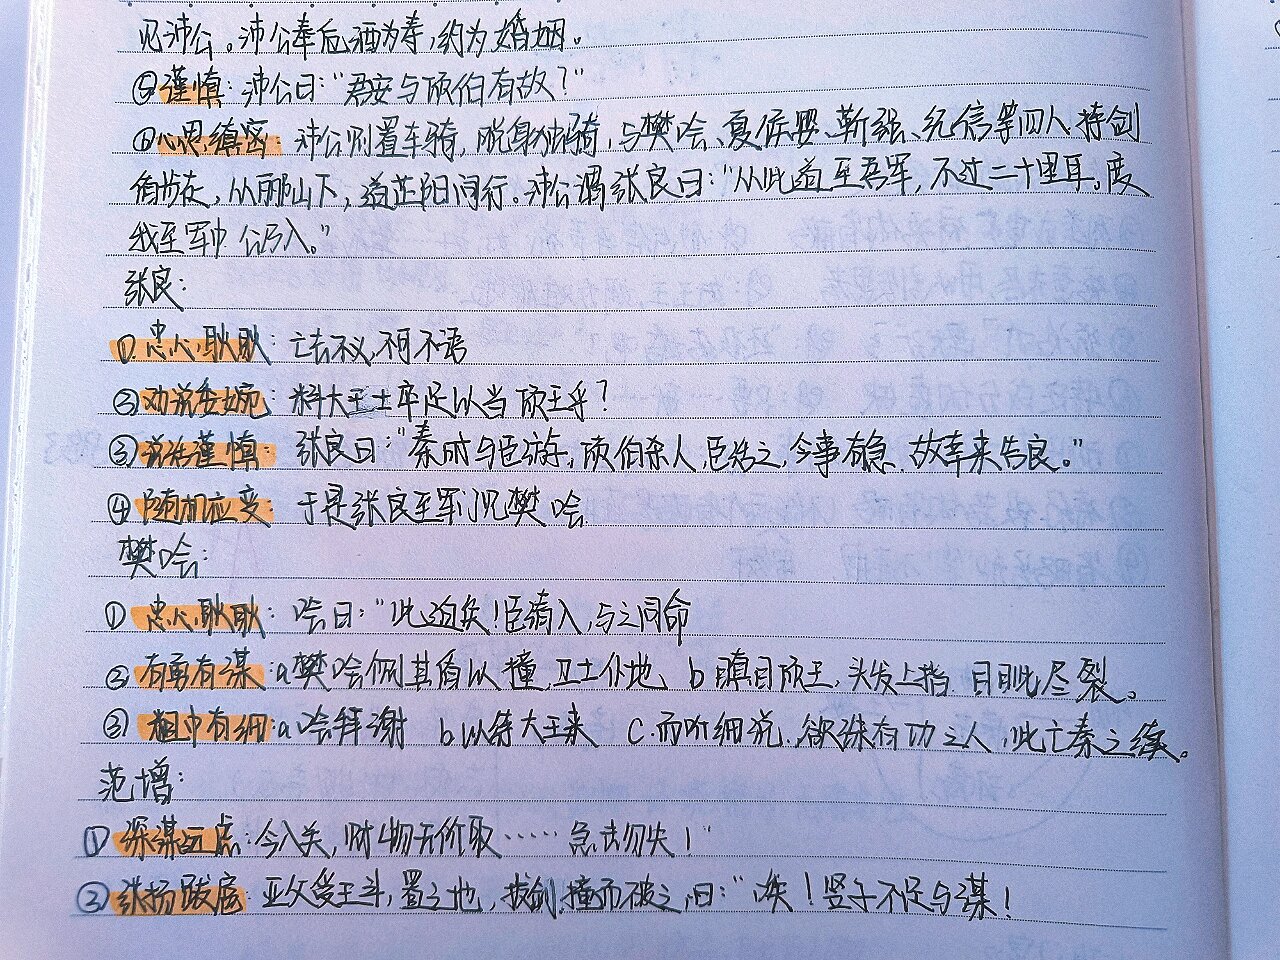 见沛公。沛公奉卮酒为寿,约为婚姻。
⑤谨慎:沛公曰:"君安与项伯有故?"
⑥心思缜密:沛公则置车骑,脱身独骑,与樊哙、夏侯婴、靳强、纪信等四人持剑
盾步走,从郦山下,道芷阳间行。沛公谓张良曰:"从此道至吾军,不过二十里耳。度
我至军中公乃入。"
张良:
①忠心耿耿:亡去不义,不可不语
②劝说委婉:料大王士卒足以当项王乎?
③说话谨慎:张良曰:"秦时与臣游,项伯杀人,臣活之,今事有急,故幸来告良。"
④随机应变:于是张良至军门见樊哙
樊哙:
①忠心耿耿:哙曰:"此迫矣!臣请入,与之同命
②有勇有谋:a樊哙侧其盾以撞,卫士仆地 b瞋目项王,头发上指 目眦尽裂。
③粗中有细:a哙拜谢 b以待大王来 C.而听细说,欲诛有功之人,此亡秦之续。
范增:
①深谋远虑:今入关,财物无所取……急击勿失!"
②张扬跋扈:亚父受玉斗,置之地,拔剑撞而破之,曰:"唉!竖子不足与谋!